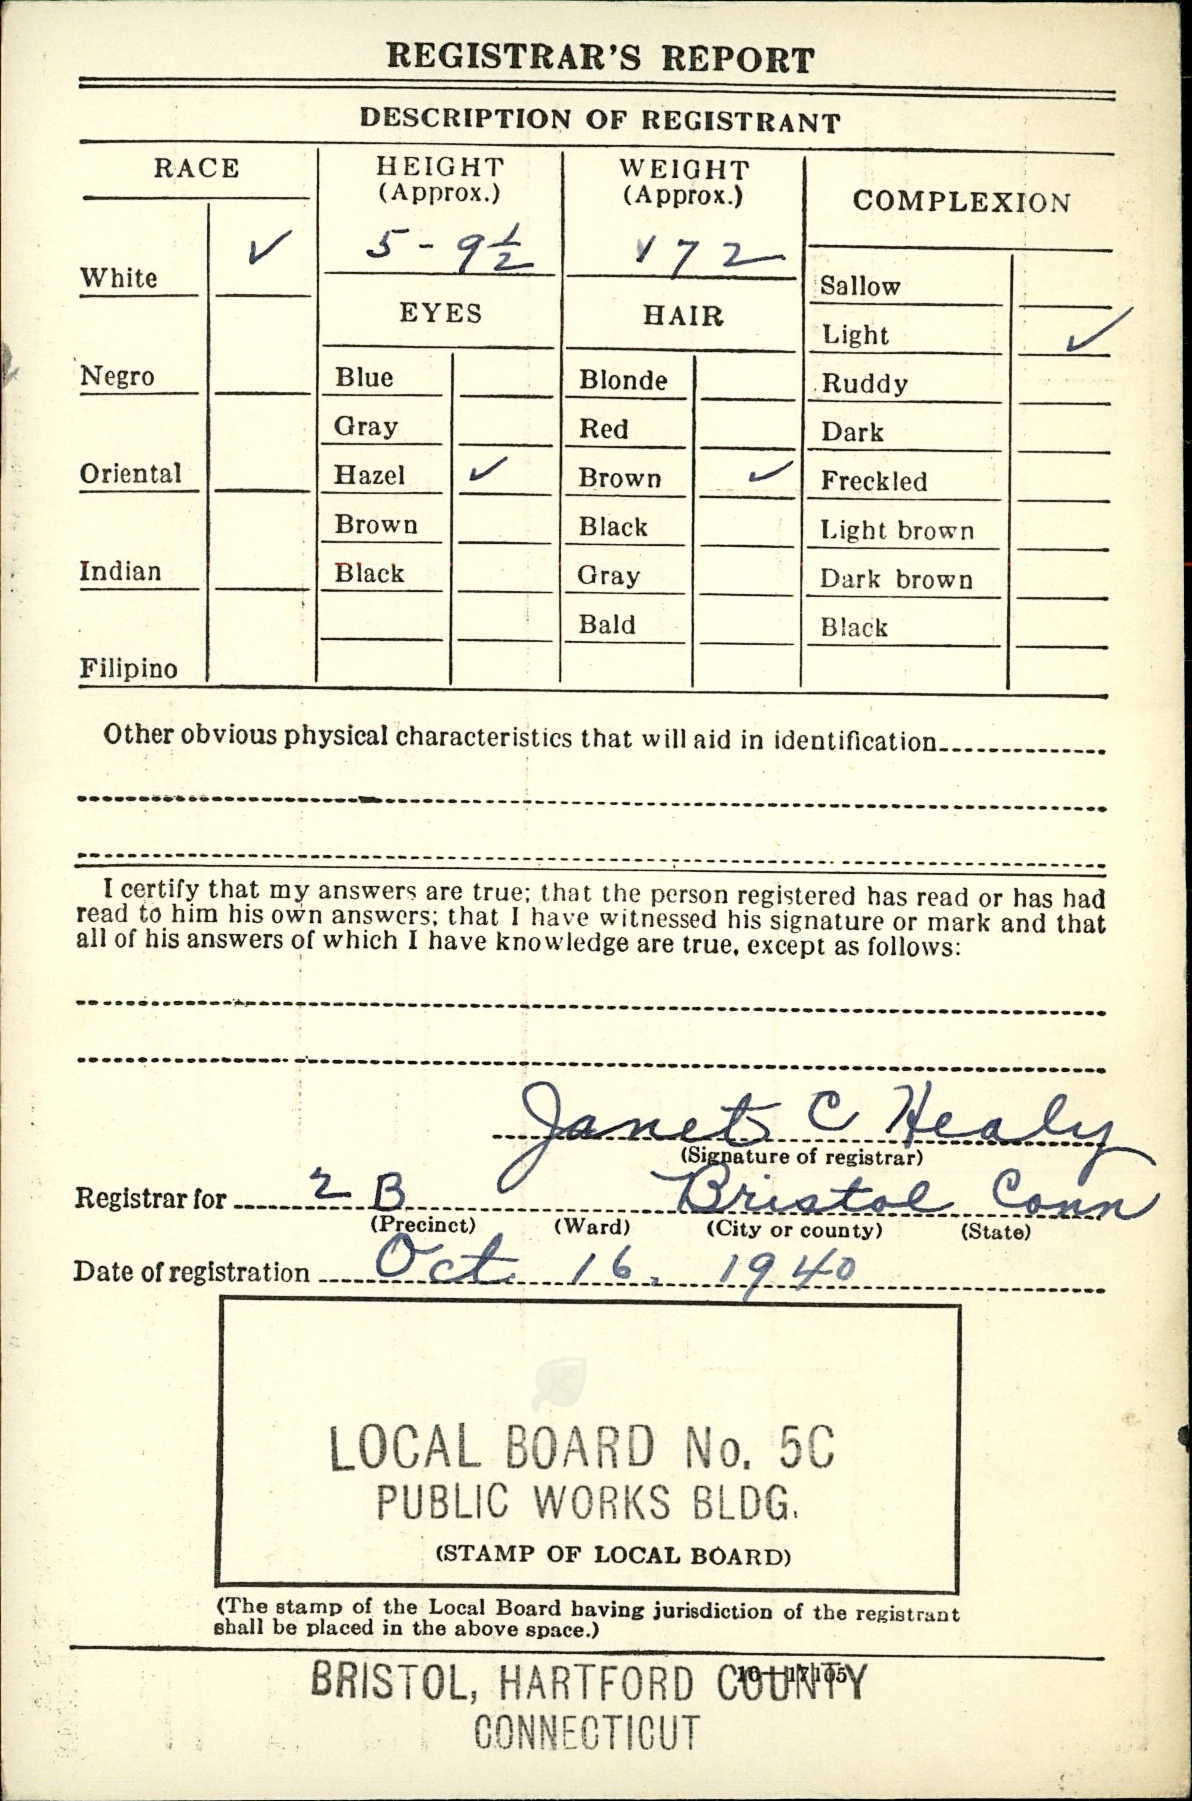 REGISTRAR'S REPORT
DESCRIPTION OF REGISTRANT
RACE
White ✓
Negro
Oriental
Indian
Filipino
HEIGHT
(Approx.)
5-9½
EYES
Blue
Gray
Hazel ✓
Brown
Black
WEIGHT
(Approx.)
172
HAIR
Blonde
Red
Brown ✓
Black
Gray
Bald
COMPLEXION
Sallow
Light ✓
Ruddy
Dark
Freckled
Light brown
Dark brown
Black
Other obvious physical characteristics that will aid in identification
I certify that my answers are true; that the person registered has read or has had
read to him his own answers; that I have witnessed his signature or mark and that
all of his answers of which I have knowledge are true, except as follows:
Janet C Healy
(Signature of registrar)
Registrar for 2 B Bristol Conn
(Precinct) (Ward) (City or county) (State)
Date of registration Oct 16, 1940
LOCAL BOARD No. 5C
PUBLIC WORKS BLDG.
(STAMP OF LOCAL BOARD)
(The stamp of the Local Board having jurisdiction of the registrant
shall be placed in the above space.)
16—17105
BRISTOL, HARTFORD COUNTY
CONNECTICUT